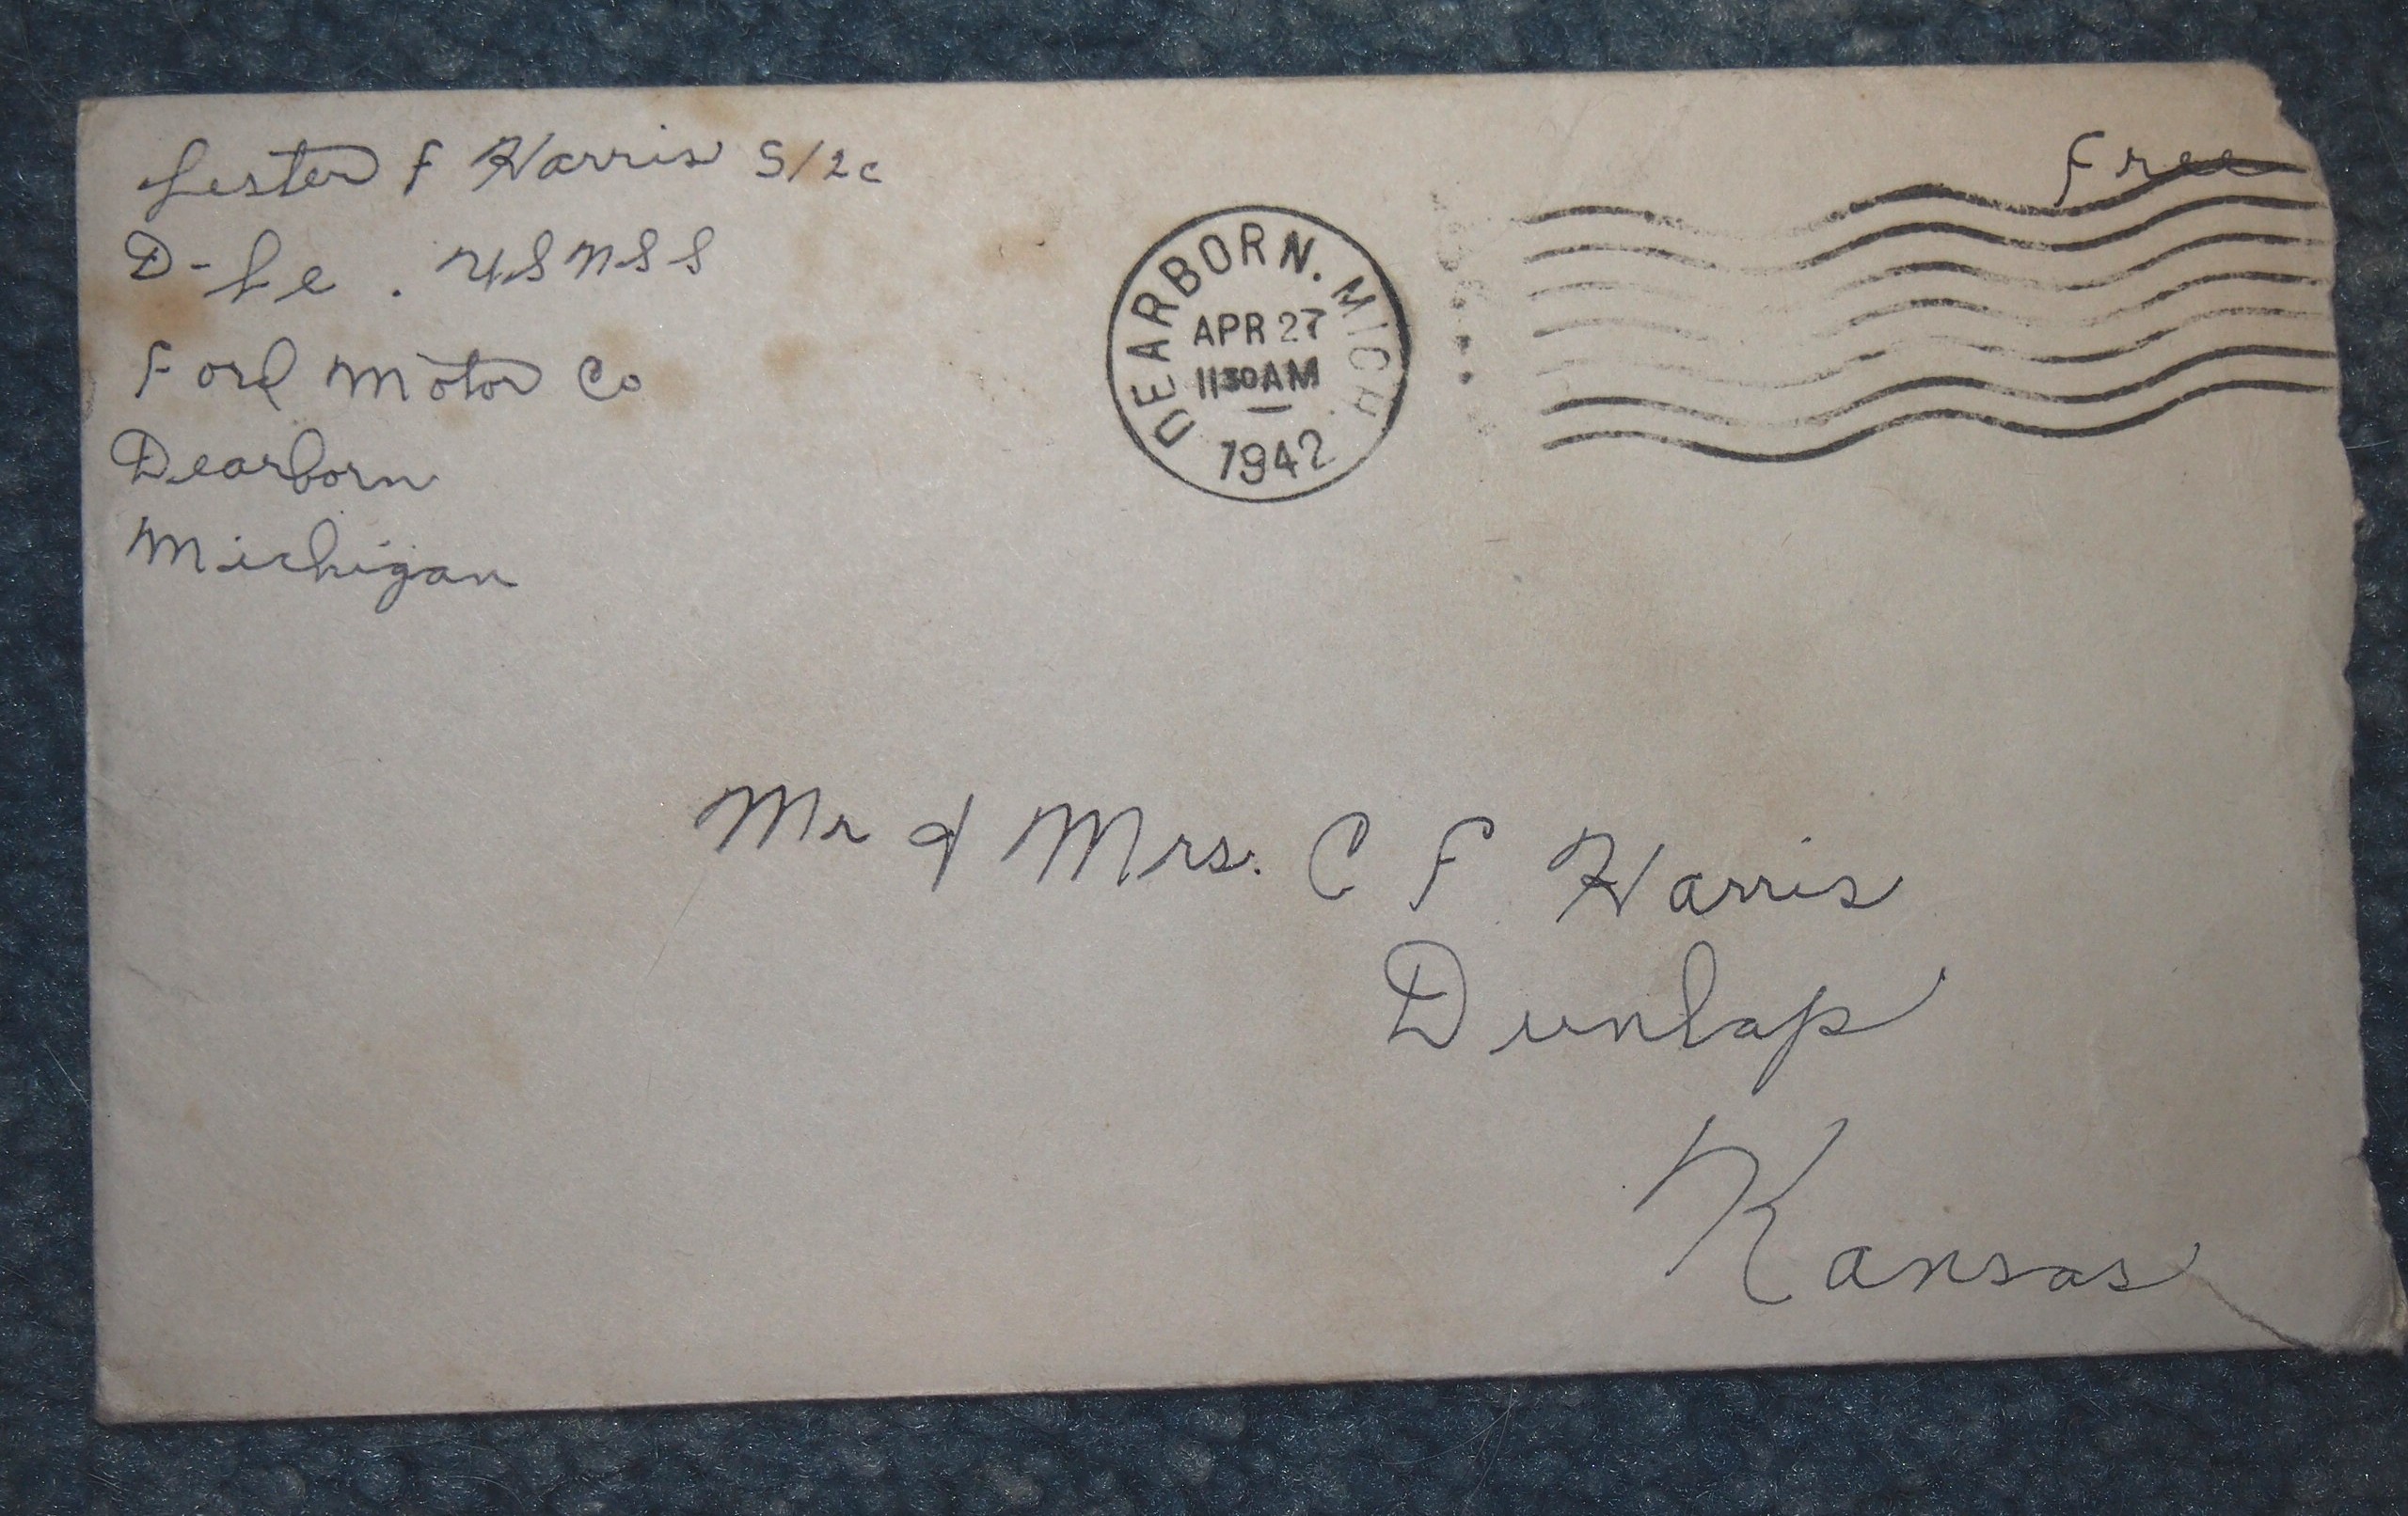 Lester F Harris S/2c
D-Le. USNSS
Ford Motor Co
Dearborn
Michigan
DEARBORN. MICH.
APR 27
1130AM
1942
Free
Mr & Mrs. C F Harris
Dunlap
Kansas